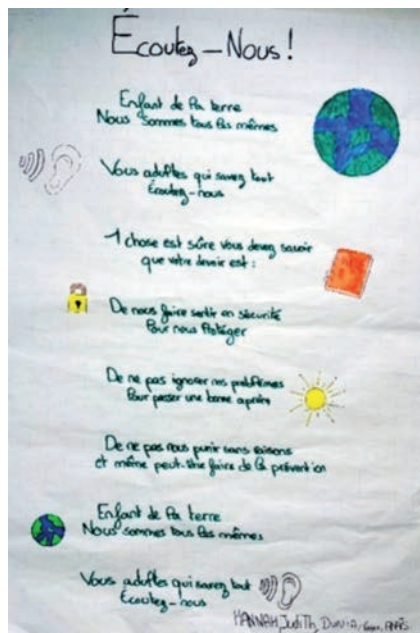 Écoutez-Nous!
Enfant de la terre
Nous sommes tous les mêmes
Vous adultes qui savez tout
Écoutez-nous
1 chose est sûre vous devez savoir
que votre devoir est :
De nous faire sentir en sécurité
Pour nous Protéger
De ne pas ignorer nos problèmes
Pour passer une bonne
De ne pas nous punir sans raisons
et même peut-être faire de la prévention
Enfant de la terre
Nous sommes tous les mêmes
Vous adultes qui savez tout
Écoutez-nous
HANNAH, Judith, DUNIA,